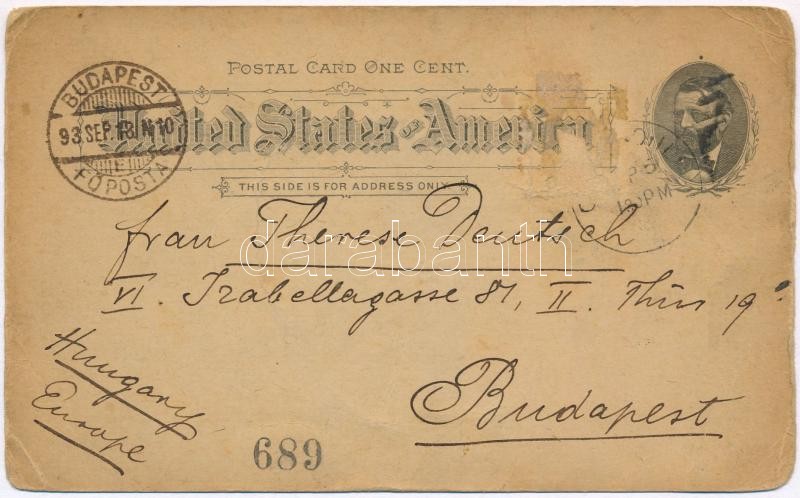 POSTAL CARD ONE CENT.
United States of America
THIS SIDE IS FOR ADDRESS ONLY.
BUDAPEST
93 SEP. 18. N 10
FŐPOSTA
120PM
Frau Therese Deutsch
VI. Izabellagasse 81, II. Thür 19.
Budapest
Hungary
Europe
689
darabanth